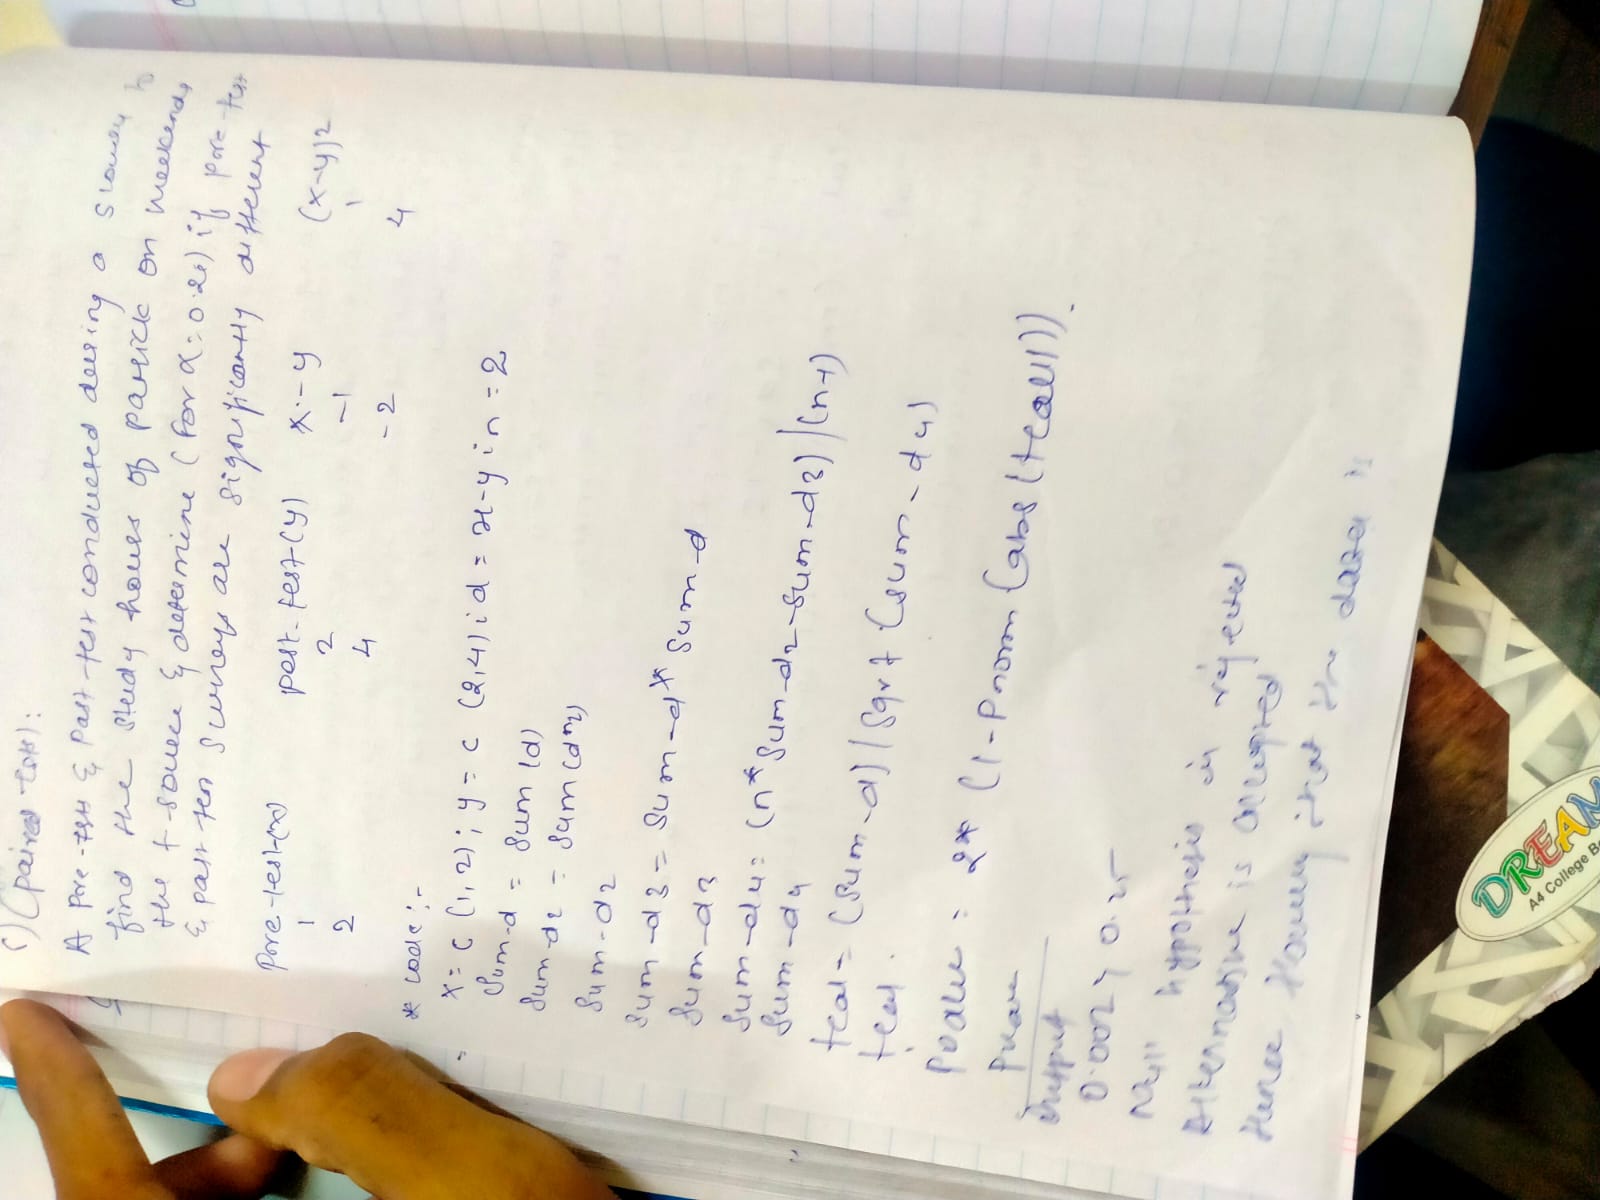 c) (paired test):
A Pre-test & Past-test conducted during a survey to
find the study hours of patrick on weekends
the t-source & determine (for α=0.20) if pre-test
& past-test surveys are significantly different
Pre-test(x) past-test(y) x-y (x-y)2
1 2 -1 1
2 4 -2 4
* code :-
x = c (1,2); y = c (2,4); d = x-y; n = 2
Sum-d = sum (d)
Sum-d2 = sum (d^2)
Sum-d2
Sum-d3 = Sum-d* Sum-d
Sum-d3
Sum-d4 = (n* Sum-d2-Sum-d3)/(n-1)
Sum-d4
tcal = (Sum-d)/Sqrt (Sum-d4)
tcal.
Pvalue = 2* (1-Pnorm (abs(tcal))).
Pvalue
Output
Null hypothesis is rejected
Alternative is accepted
Hence, that the data is
DREAM
A4 College Bo